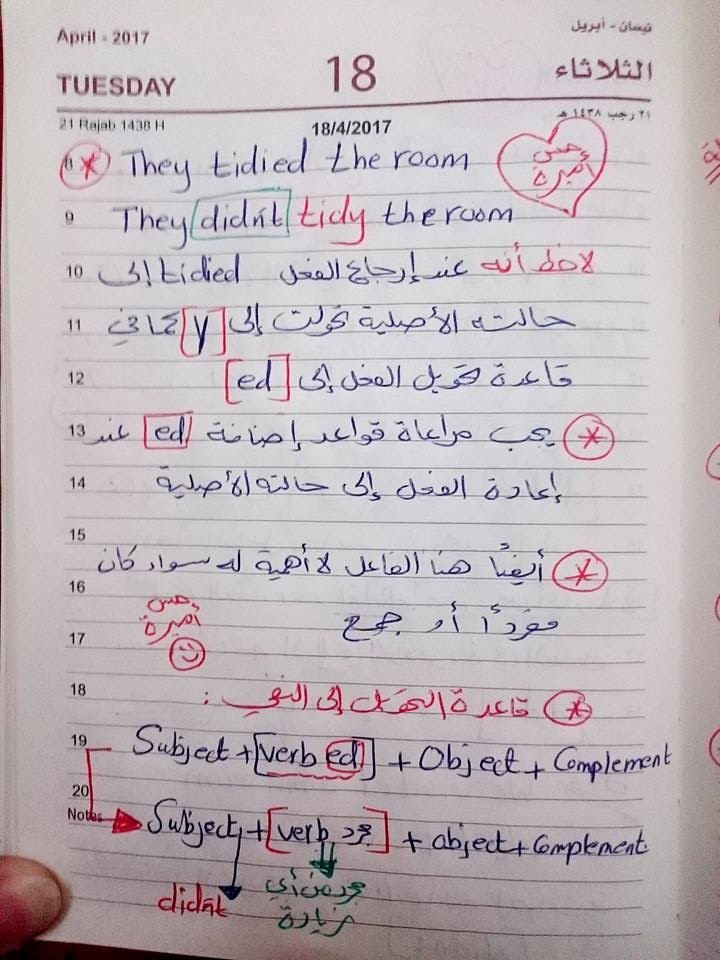 April - 2017
نيسان - أبريل
TUESDAY
18
الثلاثاء
21 Rajab 1438 H
18/4/2017
٢١ رجب ١٤٣٨ هـ
8 * They tidied the room
همس أميرة
9 They didn't tidy the room
10 لاحظ أنه عند إرجاع الفعل tidied إلى
11 حالته الأصلية تحولت إلى [y] كما في
12 قاعدة تحويل الفعل إلى [ed]
13 * يجب مراعاة قواعد إضافة [ed] عند
14 إعادة الفعل إلى حالته الأصلية
15
* أيضًا هنا الفاعل لا أهمية له سواء كان
16
مفردًا أو جمع
همس أميرة
17
18 * قاعدة التحويل إلى النفي :
19 Subject + [verb ed] + Object + Complement
20
Notes Subject + [verb مجرد] + object + Complement
didn't
مجرد من أي
زيادة